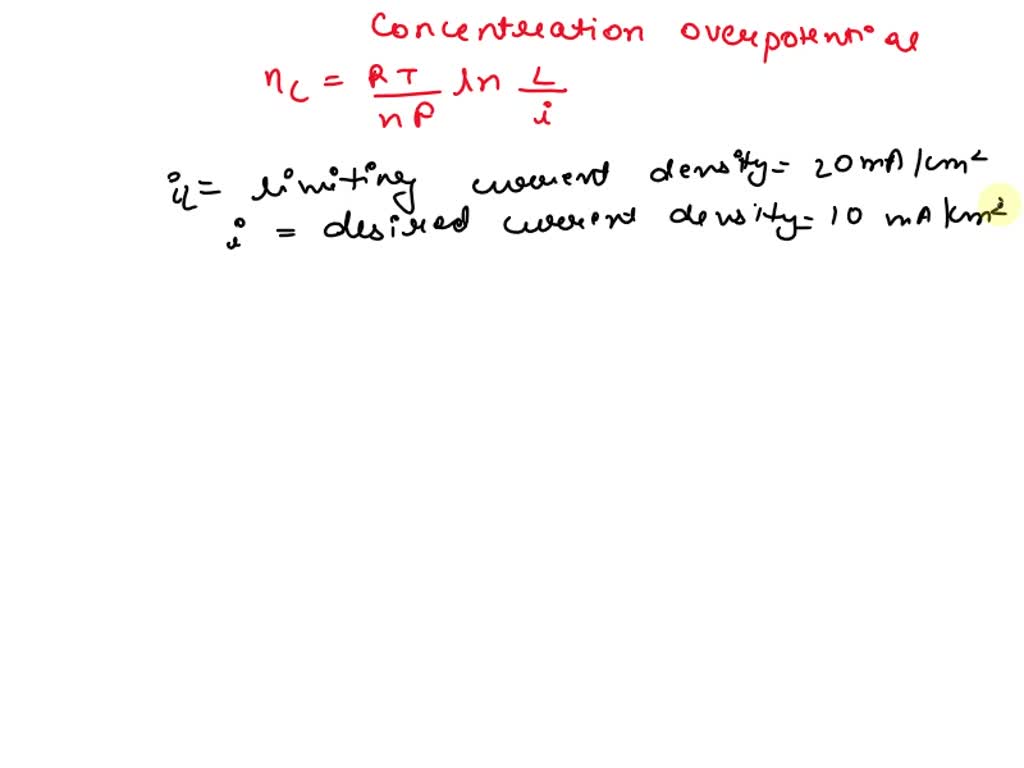 Concentration overpotential
η_c = RT/nF ln L/i
i_L = limiting current density = 20 mA/cm²
i = desired current density = 10 mA/cm²